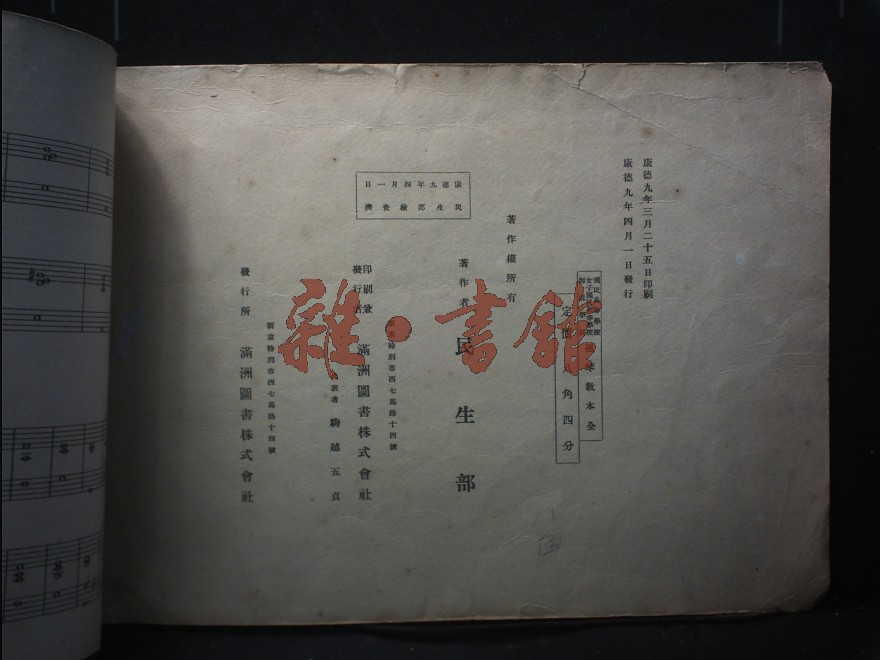 康德九年三月二十五日印刷
康德九年四月一日發行
國民高等學校
女子國民高等學校
教本全
定價 角四分
著作權所有
著作者 民生部
新京特別市西七馬路十四號
印刷兼
發行者 滿洲圖書株式會社
代表者 駒越五貞
康德九年四月一日
民生部檢査濟
新京特別市西七馬路十四號
發行所 滿洲圖書株式會社
雜·書館